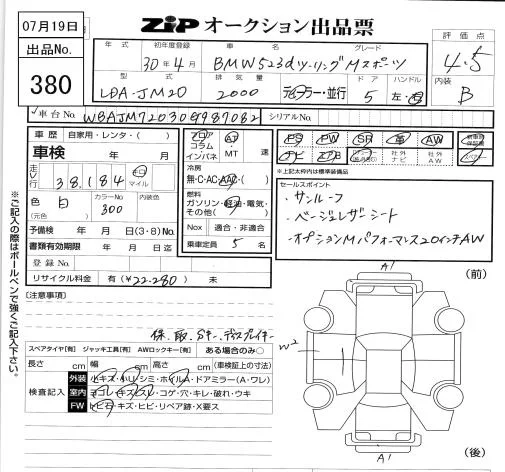 07月19日
ZiP オークション出品票
出品No.
380
評価点
4.5
内装
B
年式 初年度登録 車名 グレード
30年4月 BMW523dツーリングMスポーツ
型式 排気量 ドア ハンドル
LDA-JM20 2000 ディーラー・並行 5 左・右
車台No. シリアルNo.
車歴 自家用・レンタ・( )
車検 年 月
走行 38,184 キロ マイル
フロア コラム インパネ AT・MT 速
冷房
無・C・AC・AAC・( )
燃料
ガソリン・軽油・電気・その他( )
PS PW SR 革 AW
ナビ エアB 社外ナビ 社外AW
※上記太枠内は標準装備品
色 白 (元色) カラーNo. 300 内装色
予備検 年 月 日(3・8)No.
Nox 適合・非適合
書類有効期限 年 月 日迄
乗車定員 5 名
登録No.
リサイクル料金 有(¥22,280) 無
セールスポイント
・サンルーフ
・ベージュレザーシート
・オプションMパフォーマンス20インチAW
※ご記入の際はボールペンで強くご記入下さい。
[注意事項]
保、取、Sキー、ディスプレイキー
スペアタイヤ[有] ジャッキ工具[有] AWロックキー[有] ある場合のみ○
長さ cm 幅 cm 高さ cm (車検証上の寸法)
検査記入
外装 小キズ・小凹・シミ・ホイルA・ドアミラー(A・ワレ)
室内 ヨゴレ・キズ・スレ・コゲ・穴・キレ・破れ・ウキ
FW トビ石・キズ・ヒビ・リペア跡・X要ス
A1
(前)
W2
A1
(後)